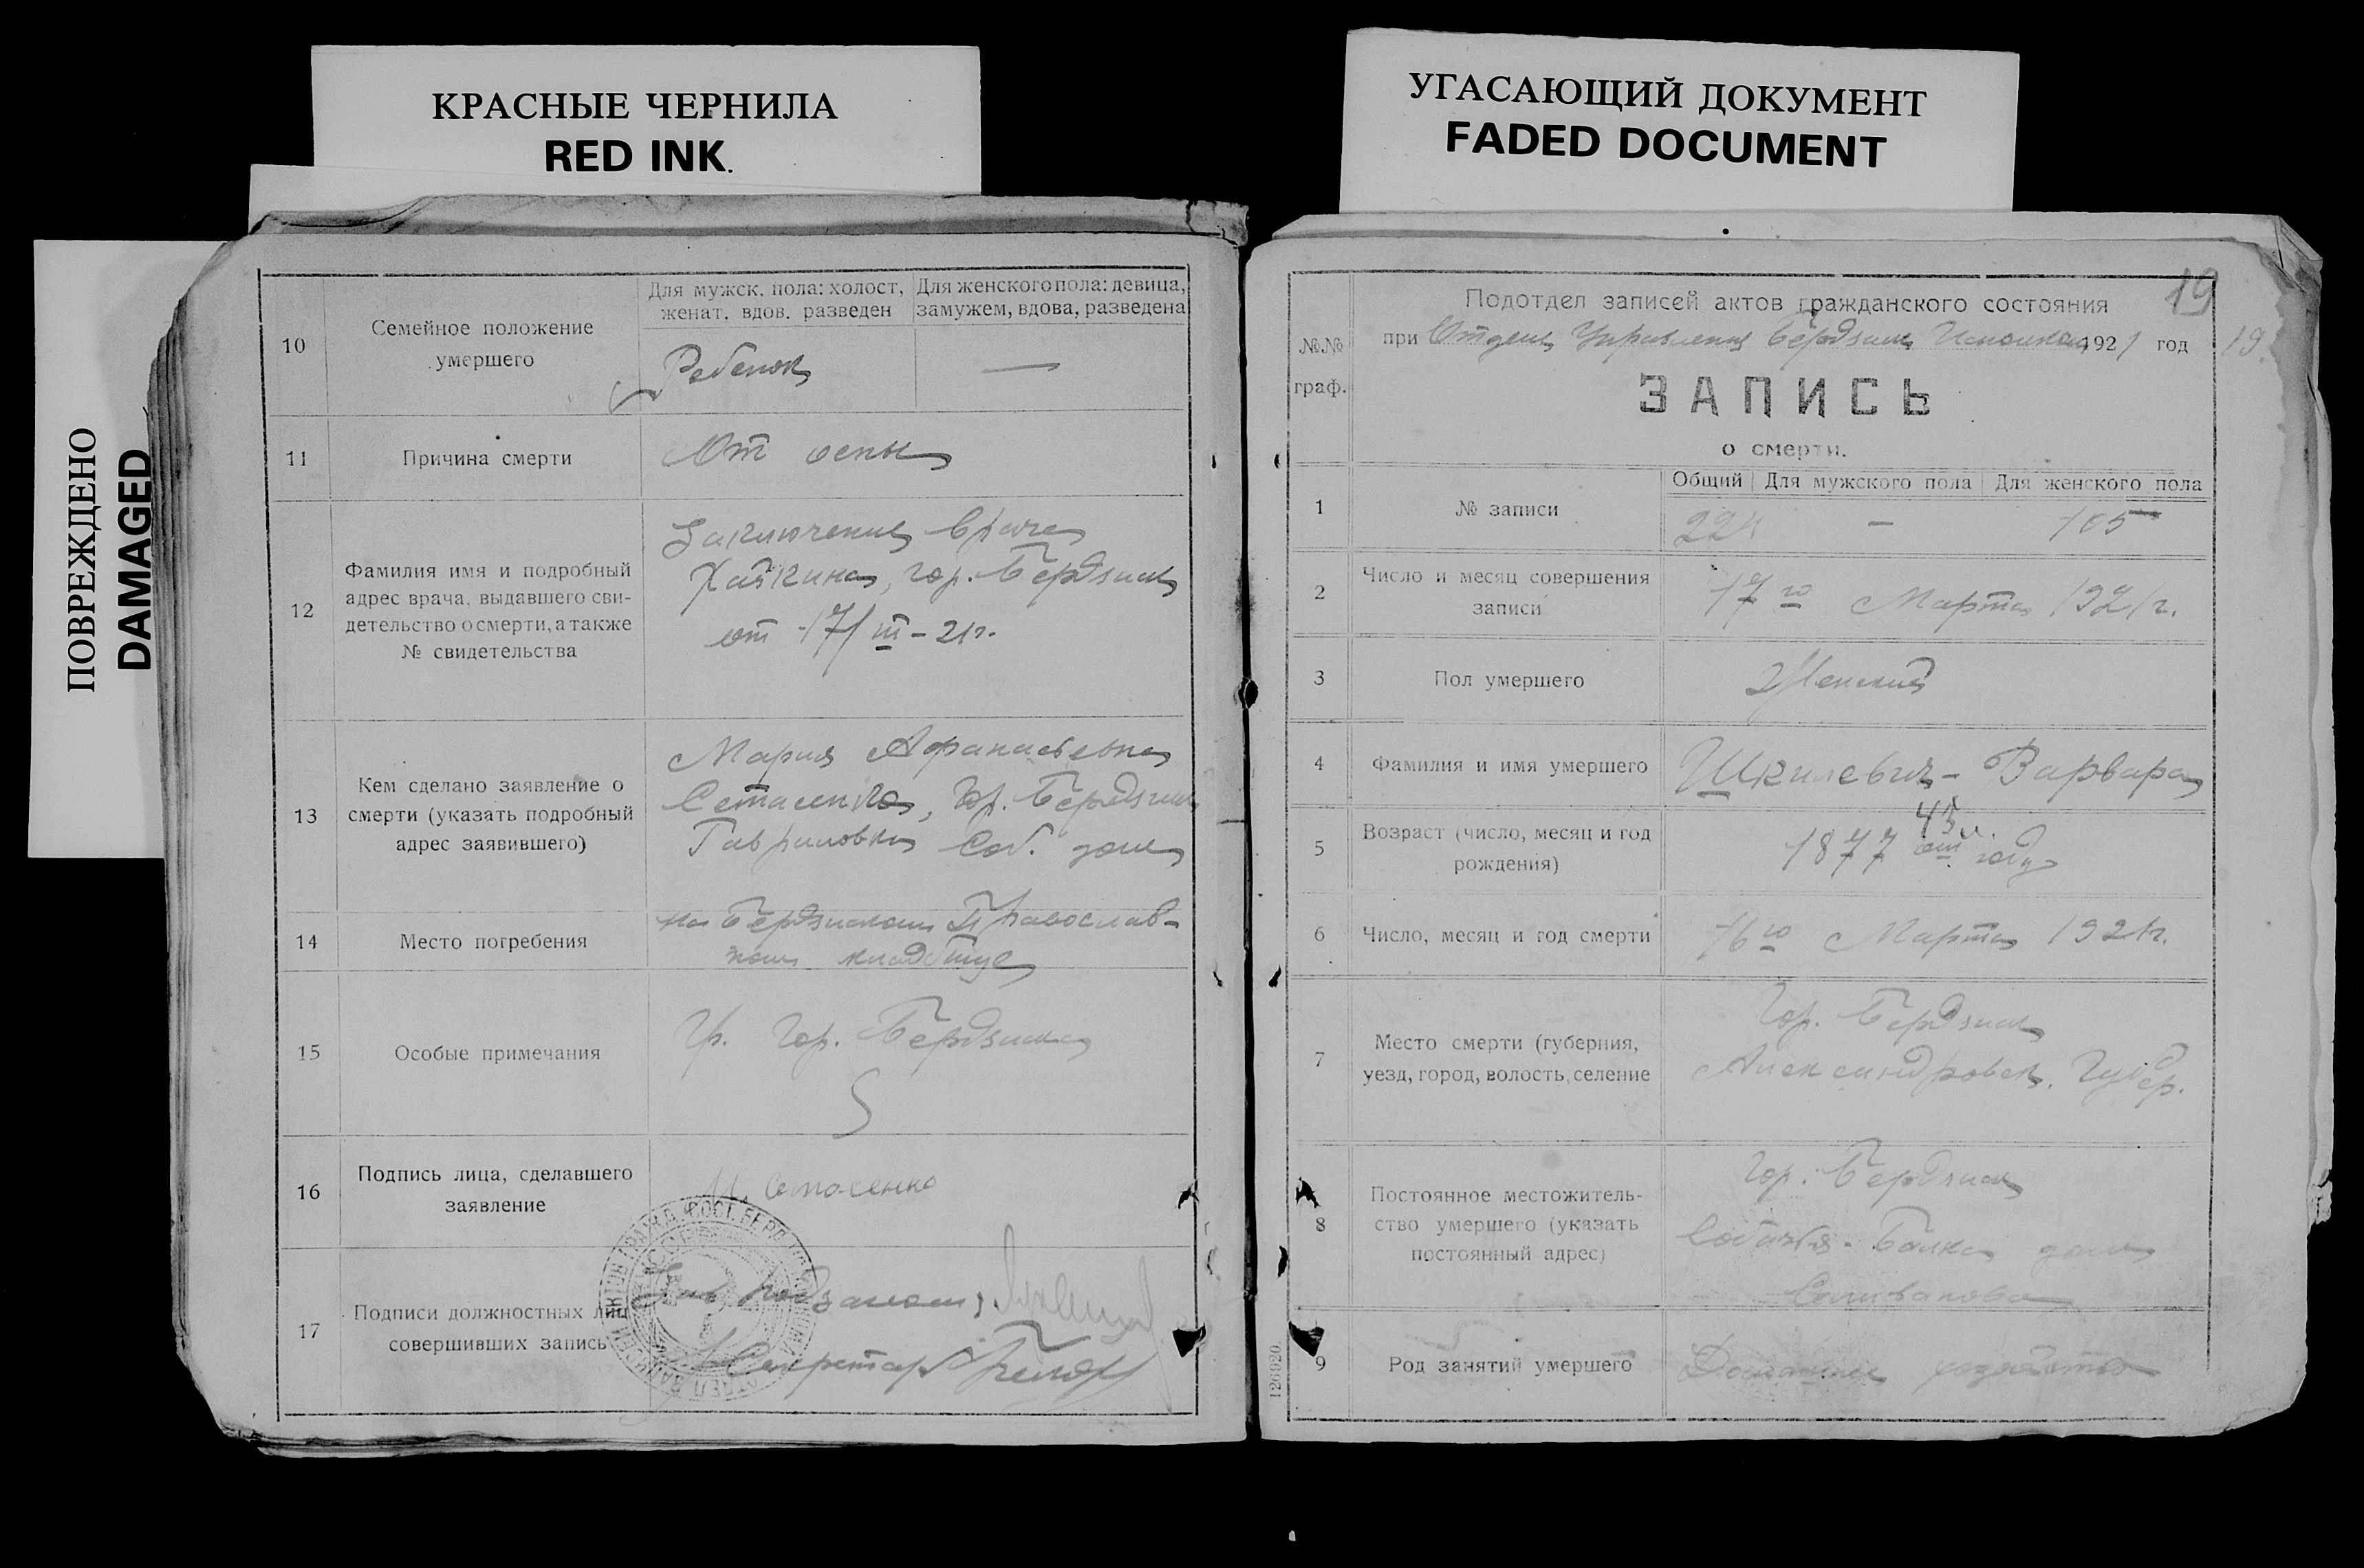 КРАСНЫЕ ЧЕРНИЛА
RED INK.
ПОВРЕЖДЕНО
DAMAGED
10
Семейное положение
умершего
Для мужск. пола: холост,
женат. вдов. разведен
Для женского пола: девица,
замужем, вдова, разведена
Ребенок
—
11
Причина смерти
От оспы
12
Фамилия имя и подробный
адрес врача, выдавшего сви-
детельство о смерти, а также
№ свидетельства
Заключение врача
Хайкина, гор. Бердянск
от 17/III-21г.
13
Кем сделано заявление о
смерти (указать подробный
адрес заявившего)
Мария Афанасьевна
Стасенко, Гор. Бердянск
Гавриловка Соб. дом
14
Место погребения
на Бердянском Православ-
ном кладбище
15
Особые примечания
Гр. Гор. Бердянска
16
Подпись лица, сделавшего
заявление
17
Подписи должностных лиц
совершивших запись
Зав. Подзагсом
Секретарь
УГАСАЮЩИЙ ДОКУМЕНТ
FADED DOCUMENT
19
№№
граф.
Подотдел записей актов гражданского состояния
при Отделе Управления Бердянск Исполкома 1921 год
19.
ЗАПИСЬ
о смерти.
1
№ записи
Общий
Для мужского пола
Для женского пола
224
—
105
2
Число и месяц совершения
записи
17го Марта 1921г.
3
Пол умершего
Женский
4
Фамилия и имя умершего
Шкилевич - Варвара
5
Возраст (число, месяц и год
рождения)
45 л.
1877 году
6
Число, месяц и год смерти
16го Марта 1921г.
7
Место смерти (губерния,
уезд, город, волость, селение
Гор. Бердянск
Александровск. Губер.
8
Постоянное местожитель-
ство умершего (указать
постоянный адрес)
Гор. Бердянск
Собачья-Балка дом
Селиванова
9
Род занятий умершего
Домашнее хозяйство
126920.